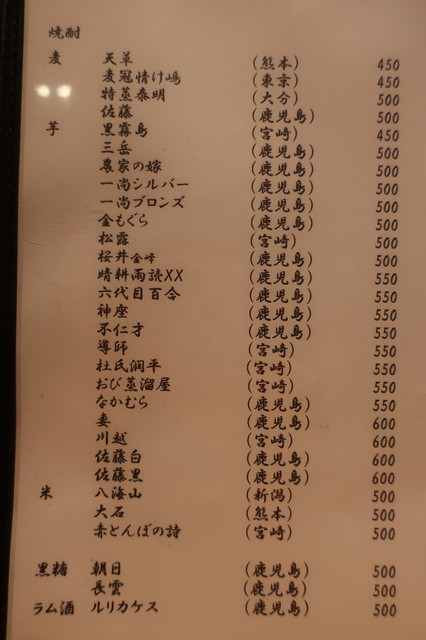 焼酎
麦 天草 (熊本) 450
麦冠情け嶋 (東京) 450
特蒸泰明 (大分) 500
佐藤 (鹿児島) 500
芋 黒霧島 (宮崎) 450
三岳 (鹿児島) 500
農家の嫁 (鹿児島) 500
一尚シルバー (鹿児島) 500
一尚ブロンズ (鹿児島) 500
金もぐら (鹿児島) 500
松露 (宮崎) 500
桜井金峰 (鹿児島) 500
晴耕雨読XX (鹿児島) 550
六代目百合 (鹿児島) 550
神座 (鹿児島) 550
不仁才 (鹿児島) 550
導師 (宮崎) 550
杜氏潤平 (宮崎) 550
おび蒸溜屋 (宮崎) 550
なかむら (鹿児島) 550
妻 (鹿児島) 600
川越 (宮崎) 600
佐藤白 (鹿児島) 600
佐藤黒 (鹿児島) 600
米 八海山 (新潟) 500
大石 (熊本) 500
赤とんぼの詩 (宮崎) 500
黒糖 朝日 (鹿児島) 500
長雲 (鹿児島) 500
ラム酒 ルリカケス (鹿児島) 500